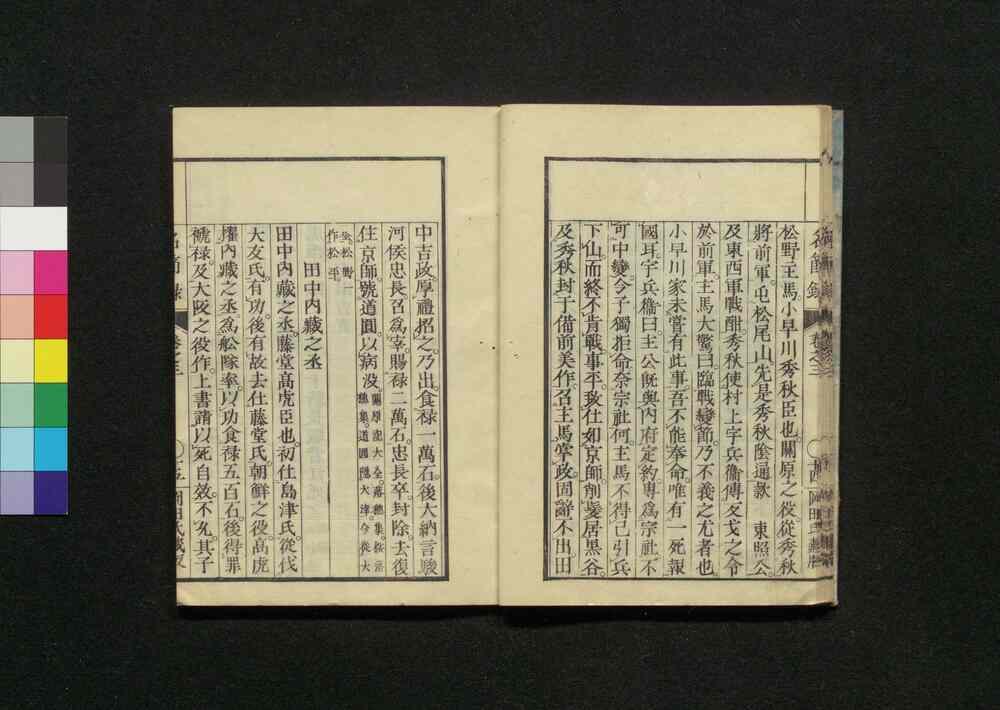 松野主馬小早川秀秋臣也。關原之役從秀秋
將前軍。屯松尾山先是秀秋陰通款 東照公
及東西軍戰酣。秀秋使村上字兵衞傳反戈之令
於前軍。主馬大驚曰。臨戰變節。乃不義之尤者也
小早川家未嘗有此事吾不能奉命。唯有一死報
國耳。字兵衞曰。主公旣與內府定約。專爲宗社不
可中變。今子獨拒命奈宗社何。主馬不得已引兵
下山。而終不肯戰事平。致仕如京師。削髮居黑谷。
及秀秋封于備前美作。召主馬掌政。固辭不出田
中吉政。厚禮招之。乃出食祿一萬石。後大納言駿
河侯忠長召爲宰。賜祿二萬石。忠長卒。封除。去復
住京師。號道圓。以病沒。
田中內藏之丞
田中內藏之丞。藤堂高虎臣也。初仕島津氏。從伐
大友氏。有功。後有故去仕藤堂氏。朝鮮之役。高虎
擢內藏之丞。爲船隊率。以功食祿五百石。後得罪
褫祿及大阪之役作。上書請以死自效。不允。其子